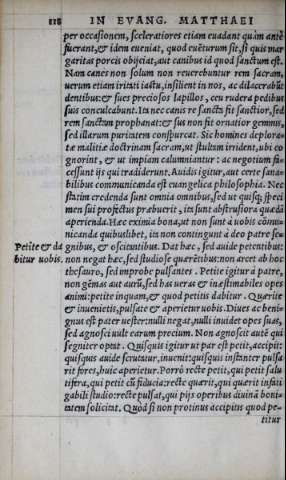 118 IN EVANG. MATTHAEI
per occasionem, sceleratiores etiam euadant quàm antè
fuerant, & idem eueniat, quod euēturum sit, si quis mar
garitas porcis obijciat, aut canibus id quod sanctum est.
Nam canes non solum non reuerebuntur rem sacram,
uerum etiam iritati iactu, insilient in nos, ac dilacerabūt
dentibus: & sues preciosos lapillos, ceu rudera pedibus
suis conculcabunt. Ita nec canis re sancta fit sanctior, sed
rem sanctam prophanat: & sus non fit ornatior gemmis,
sed illarum puritatem conspurcat. Sic homines deplora-
tæ malitiæ doctrinam sacram, ut stultam irrident, ubi co
gnorint, & ut impiam calumniantur: ac negotium fa-
cessunt ijs qui tradiderunt. Auidis igitur, aut certe sana-
bilibus communicanda est euangelica philosophia. Nec
statim credenda sunt omnia omnibus, sed ut quisq; speci
men sui profectus præbuerit, ita sunt abstrusiora quædā
aperienda. Hæc eximia bona, ut non sunt à uobis cōmu-
nicanda quibuslibet, ita non contingunt à deo patre se-
Petite & da gnibus, & oscitantibus. Dat hæc, sed auide petentibus:
bitur uobis. non negat hæc, sed studiose quærētibus: non arcet ab hoc
thesauro, sed improbe pulsantes. Petite igitur à patre,
non gēmas aut aurū, sed has ueras & inæstimabiles opes
animi: petite inquam, & quod petitis dabitur. Quærite
& inuenietis, pulsate & aperietur uobis. Diues ac beni-
gnus est pater uester: nulli negat, nulli inuidet opes suas,
sed agnosci uult earum precium. Non agnoscit autē qui
segniter optat. Quisquis igitur ut par est petit, accipit:
quisquis auide scrutatur, inuenit: quisquis instanter pulsa
rit fores, huic aperietur. Porrò recte petit, qui petit salu
tifera, qui petit cū fiducia: recte quærit, qui quærit infati
gabili studio: recte pulsat, qui pijs operibus diuinā boni-
tatem solicitat. Quòd si non protinus accipitis quod pe-
titur